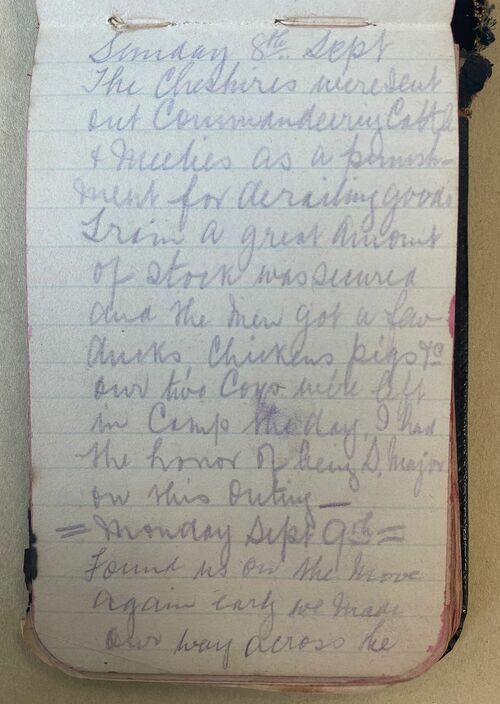 Sunday 8th Sept
The Cheshires were sent
out Commandeering Cattle
& Meelies as a punish-
ment for derailing goods
Train a great amount
of stock was secured
and the men got a few
ducks Chickens pigs &c
our two Coys were left
in Camp the day I had
the honor of being S. Major
on this Outing —
= Monday Sept 9th =
Found us on the move
again early we made
our way across the